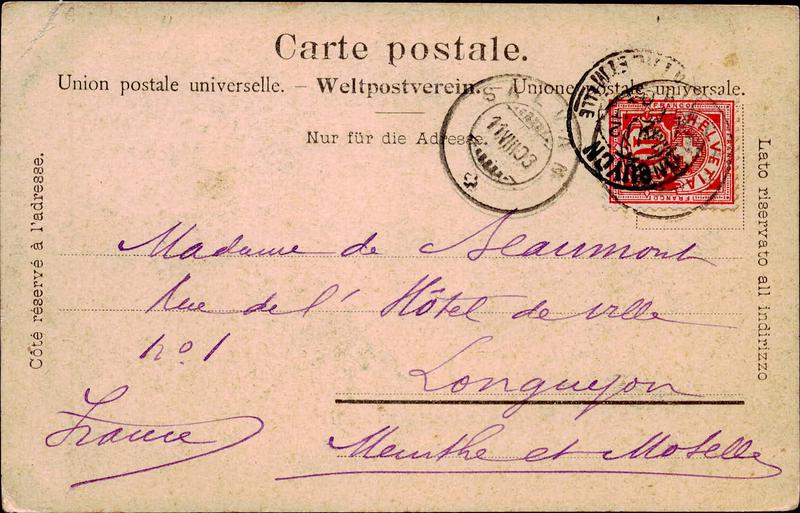 Carte postale.
Union postale universelle. – Weltpostverein. – Unione postale universale.
Nur für die Adresse.
Côté réservé à l'adresse.
Lato riservato all indirizzo
11 VIII 03
FRANCO
HELVETIA
10
FRANCO
Madame de Beaumont
Rue de l'Hôtel de ville
no 1
Longuyon
France
Meurthe et Moselle